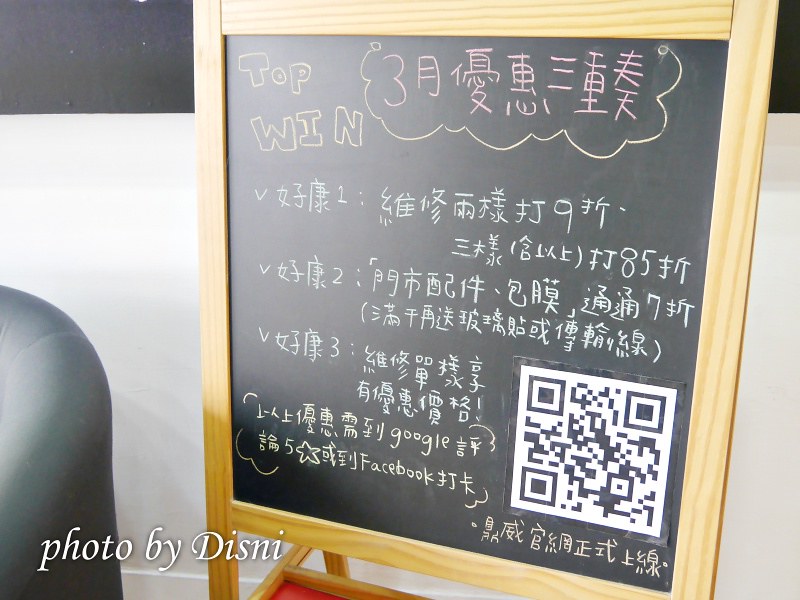 TOP
WIN
3月優惠三重奏
v 好康1：維修兩樣打9折、
三樣(含以上)打85折
v 好康2：「門市配件、包膜」通通7折
(滿千再送玻璃貼或傳輸線)
v 好康3：維修單樣享
有優惠價格！
以上優惠需到google評
論5☆或到Facebook打卡
。鼎威官網正式上線。
photo by Disni